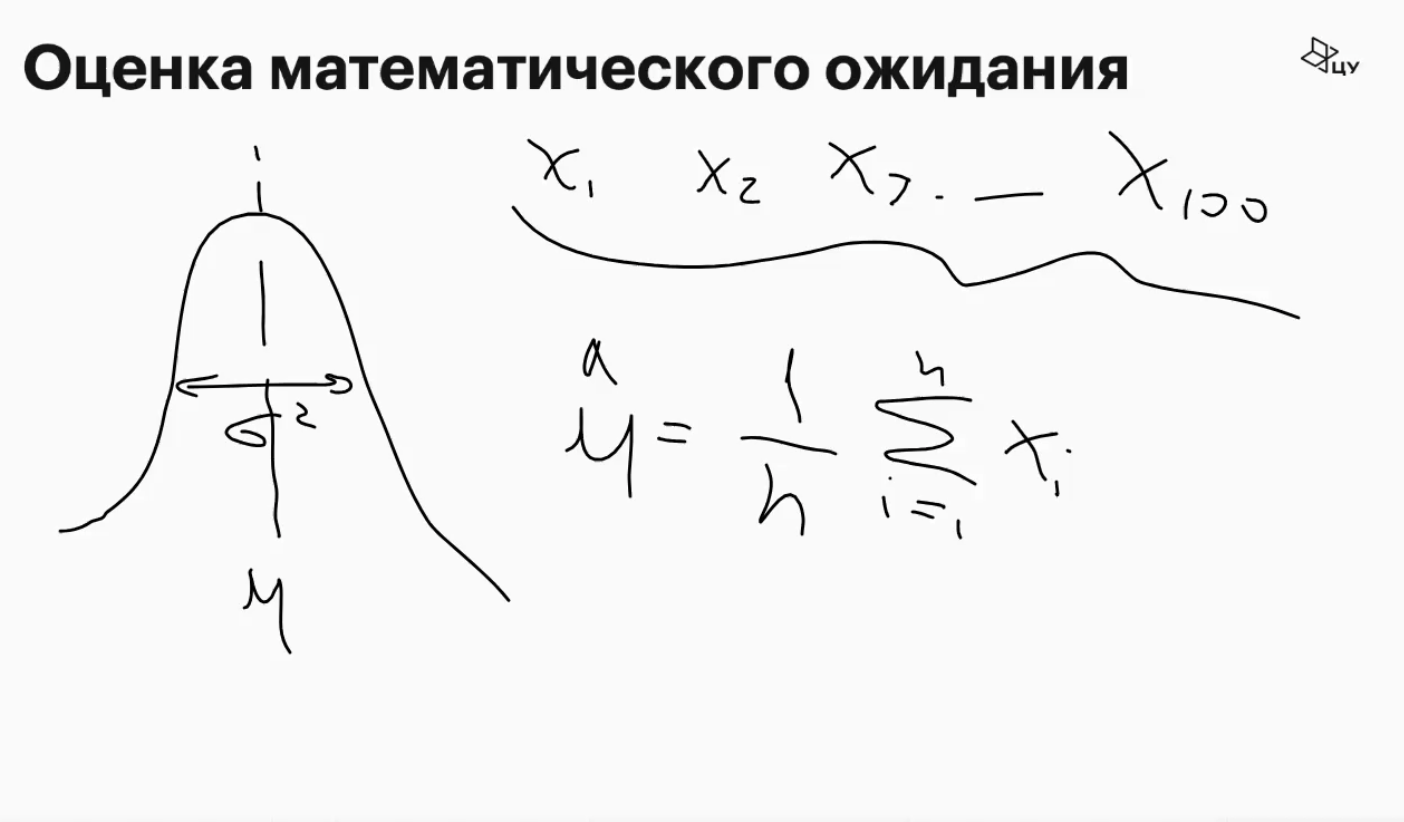 Оценка математического ожидания
ЦУ
x₁ x₂ x₃. — x₁₀₀
σ²
μ̂ = 1/n Σᵢ₌₁ⁿ xᵢ
μ